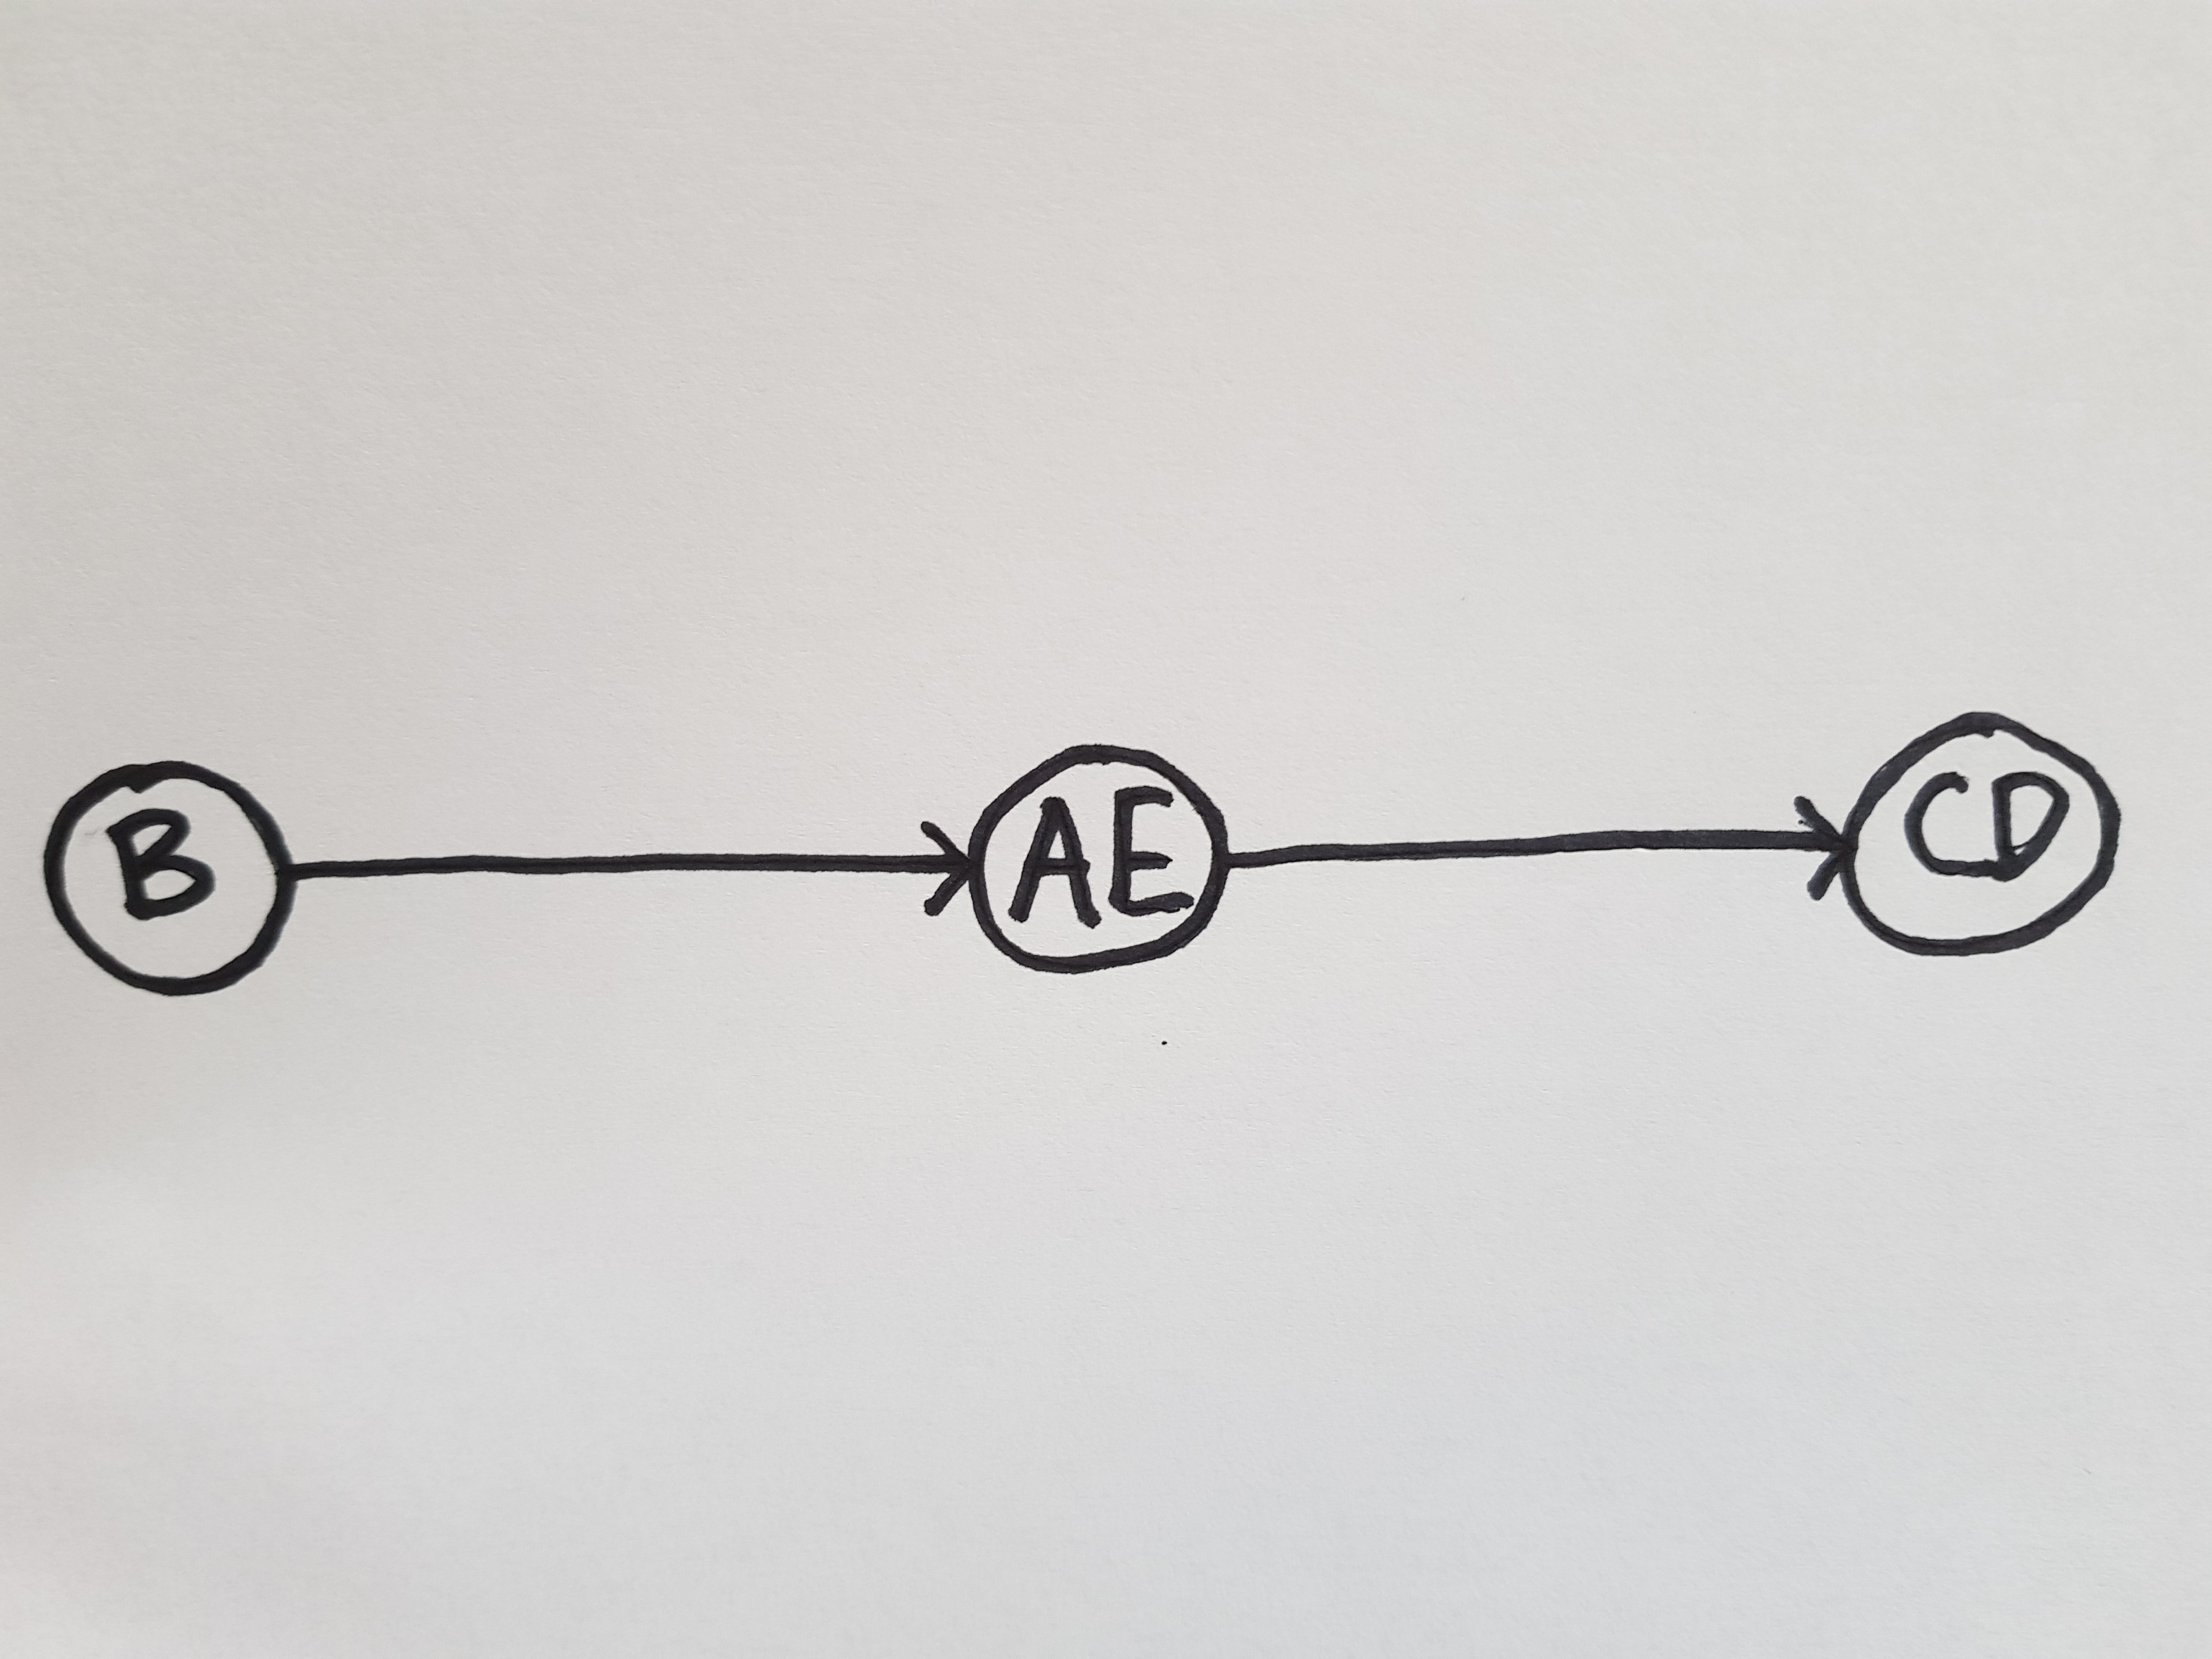 B AE CD